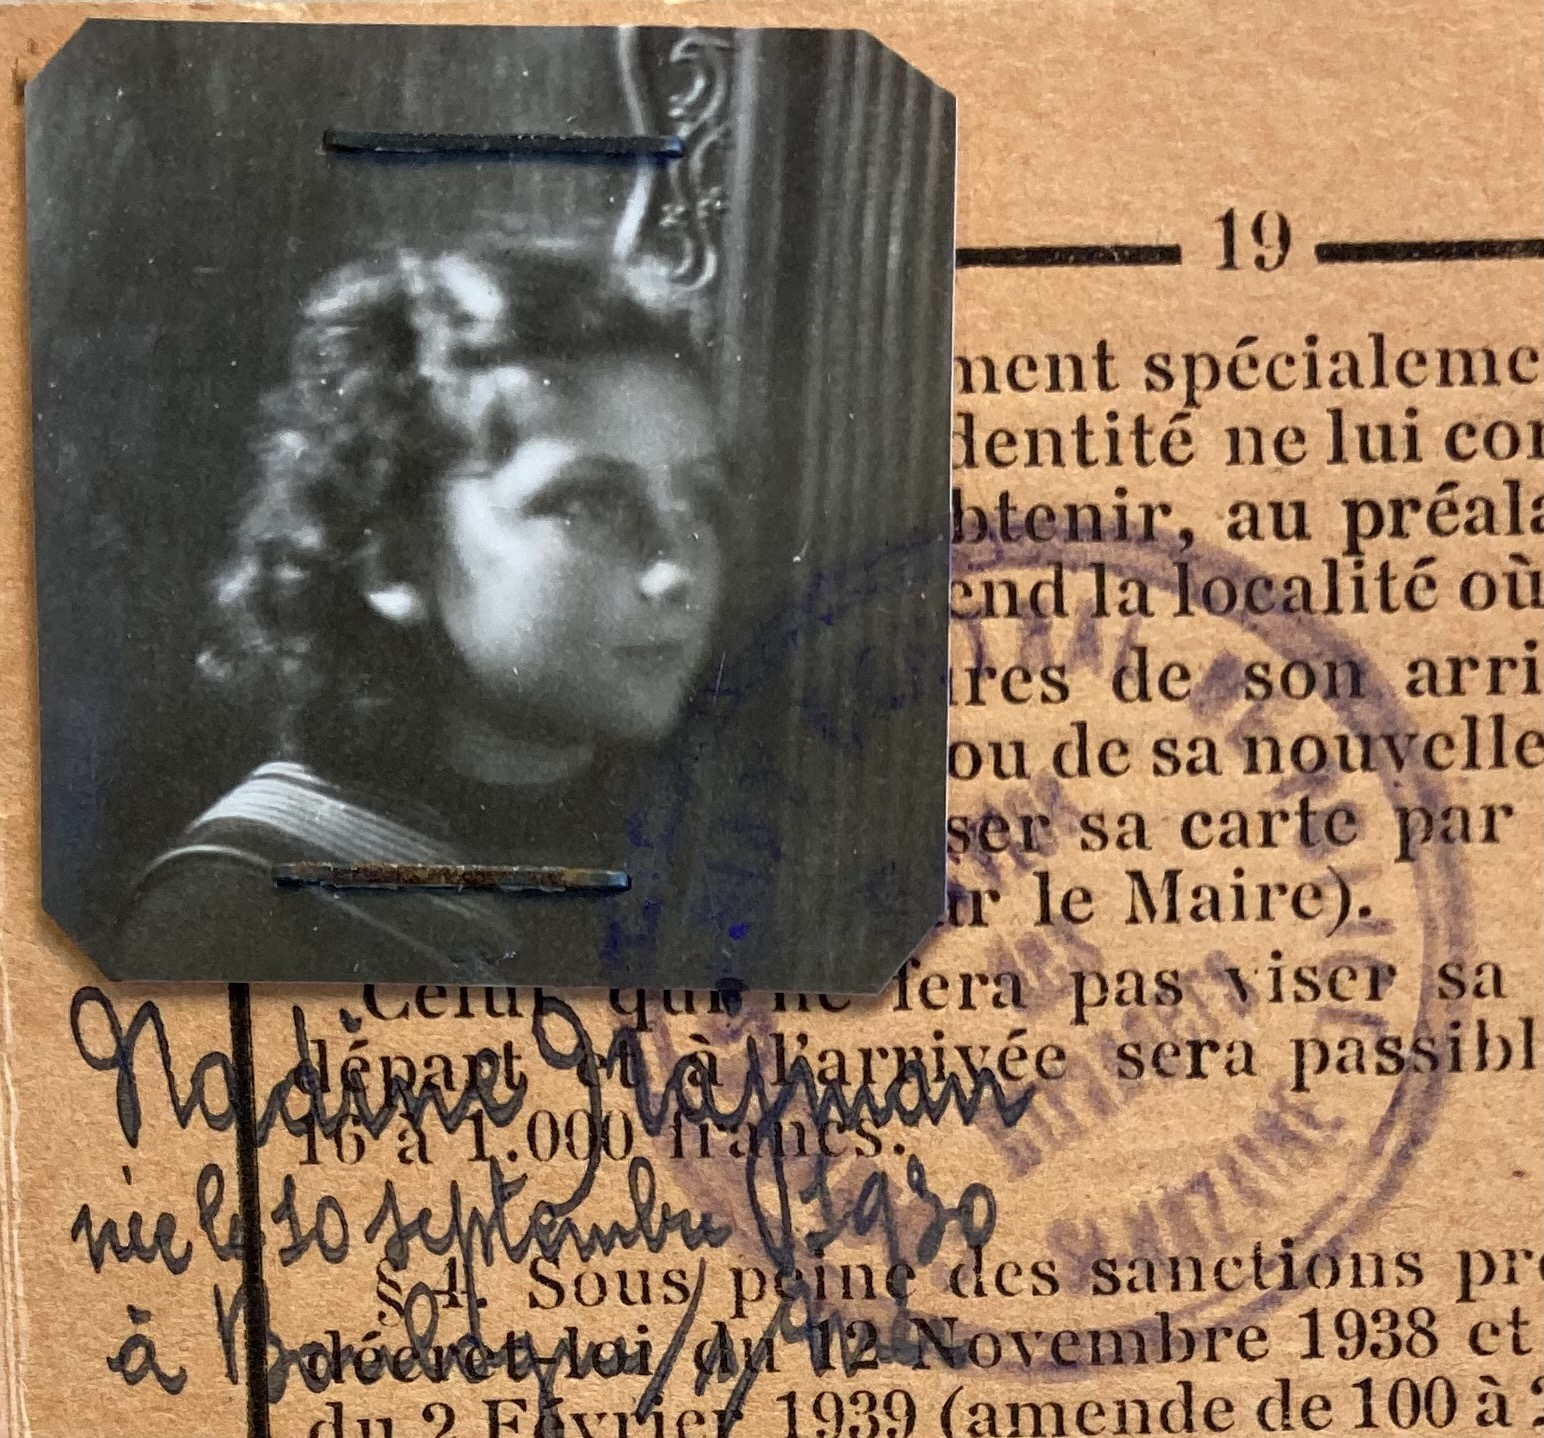 19
ment spécialeme
dentité ne lui con
btenir, au préala
end la localité où
ires de son arri
ou de sa nouvelle
ser sa carte par
ar le Maire).
Celui qui ne fera pas viser sa
départ et à l'arrivée sera passibl
16 à 1.000 francs.
Nadine Najman
née le 10 septembre 1930
à
§ 4. Sous peine des sanctions pré
décret-loi du 12 Novembre 1938 et
du 2 Février 1939 (amende de 100 à